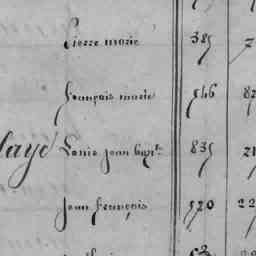 Pierre marie 385
françois marie 546 82
Louis jean bapt.te 835 21
jean françois 520 22